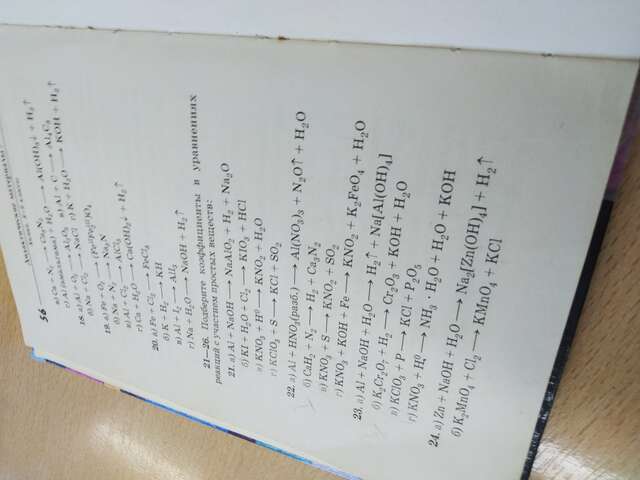 56
Дидактические материалы
а) Ca + N₂ ⟶ Ca₃N₂
18. а) Al + O₂ ⟶ Al₂O₃ в) Al + C ⟶ Al₄C₃
б) Na + Cl₂ ⟶ NaCl г) K + H₂O ⟶ KOH + H₂↑
19.
б) Na + N₂ ⟶ Na₃N
в) Al + Cl₂ ⟶ AlCl₃
г) Ca + H₂O ⟶ Ca(OH)₂ + H₂↑
20. а) Fe + Cl₂ ⟶ FeCl₃
б) K + H₂ ⟶ KH
в) Al + I₂ ⟶ AlI₃
г) Na + H₂O ⟶ NaOH + H₂↑
21—26. Подберите коэффициенты в уравнениях
реакций с участием простых веществ:
21. а) Al + NaOH ⟶ NaAlO₂ + H₂ + Na₂O
б) KI + H₂O + Cl₂ ⟶ KIO₃ + HCl
в) KNO₃ + H⁰ ⟶ KNO₂ + H₂O
г) KClO₃ + S ⟶ KCl + SO₂
22. а) Al + HNO₃(разб.) ⟶ Al(NO₃)₃ + N₂O↑ + H₂O
б) CaH₂ + N₂ ⟶ H₂ + Ca₃N₂
в) KNO₃ + S ⟶ KNO₂ + SO₂
г) KNO₃ + KOH + Fe ⟶ KNO₂ + K₂FeO₄ + H₂O
23. а) Al + NaOH + H₂O ⟶ H₂↑ + Na[Al(OH)₄]
б) K₂Cr₂O₇ + H₂ ⟶ Cr₂O₃ + KOH + H₂O
в) KClO₃ + P ⟶ KCl + P₂O₅
г) KNO₃ + H⁰ ⟶ NH₃ · H₂O + H₂O + KOH
24. а) Zn + NaOH + H₂O ⟶ Na₂[Zn(OH)₄] + H₂↑
б) K₂MnO₄ + Cl₂ ⟶ KMnO₄ + KCl